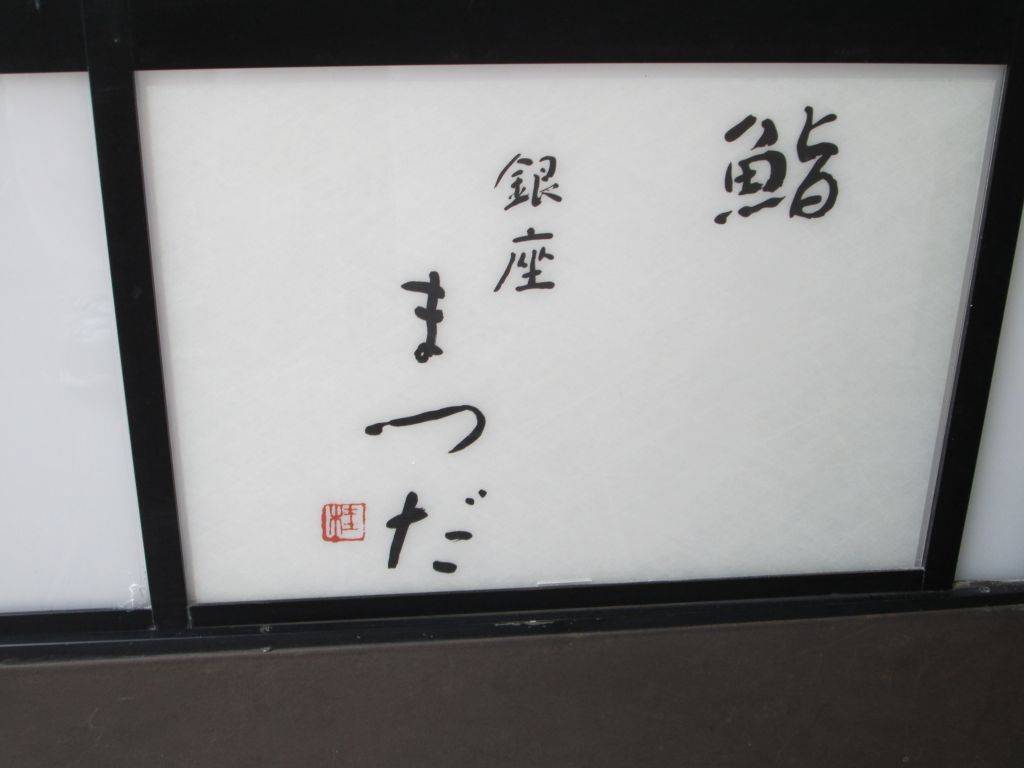 鮨
銀座
まつだ
桂